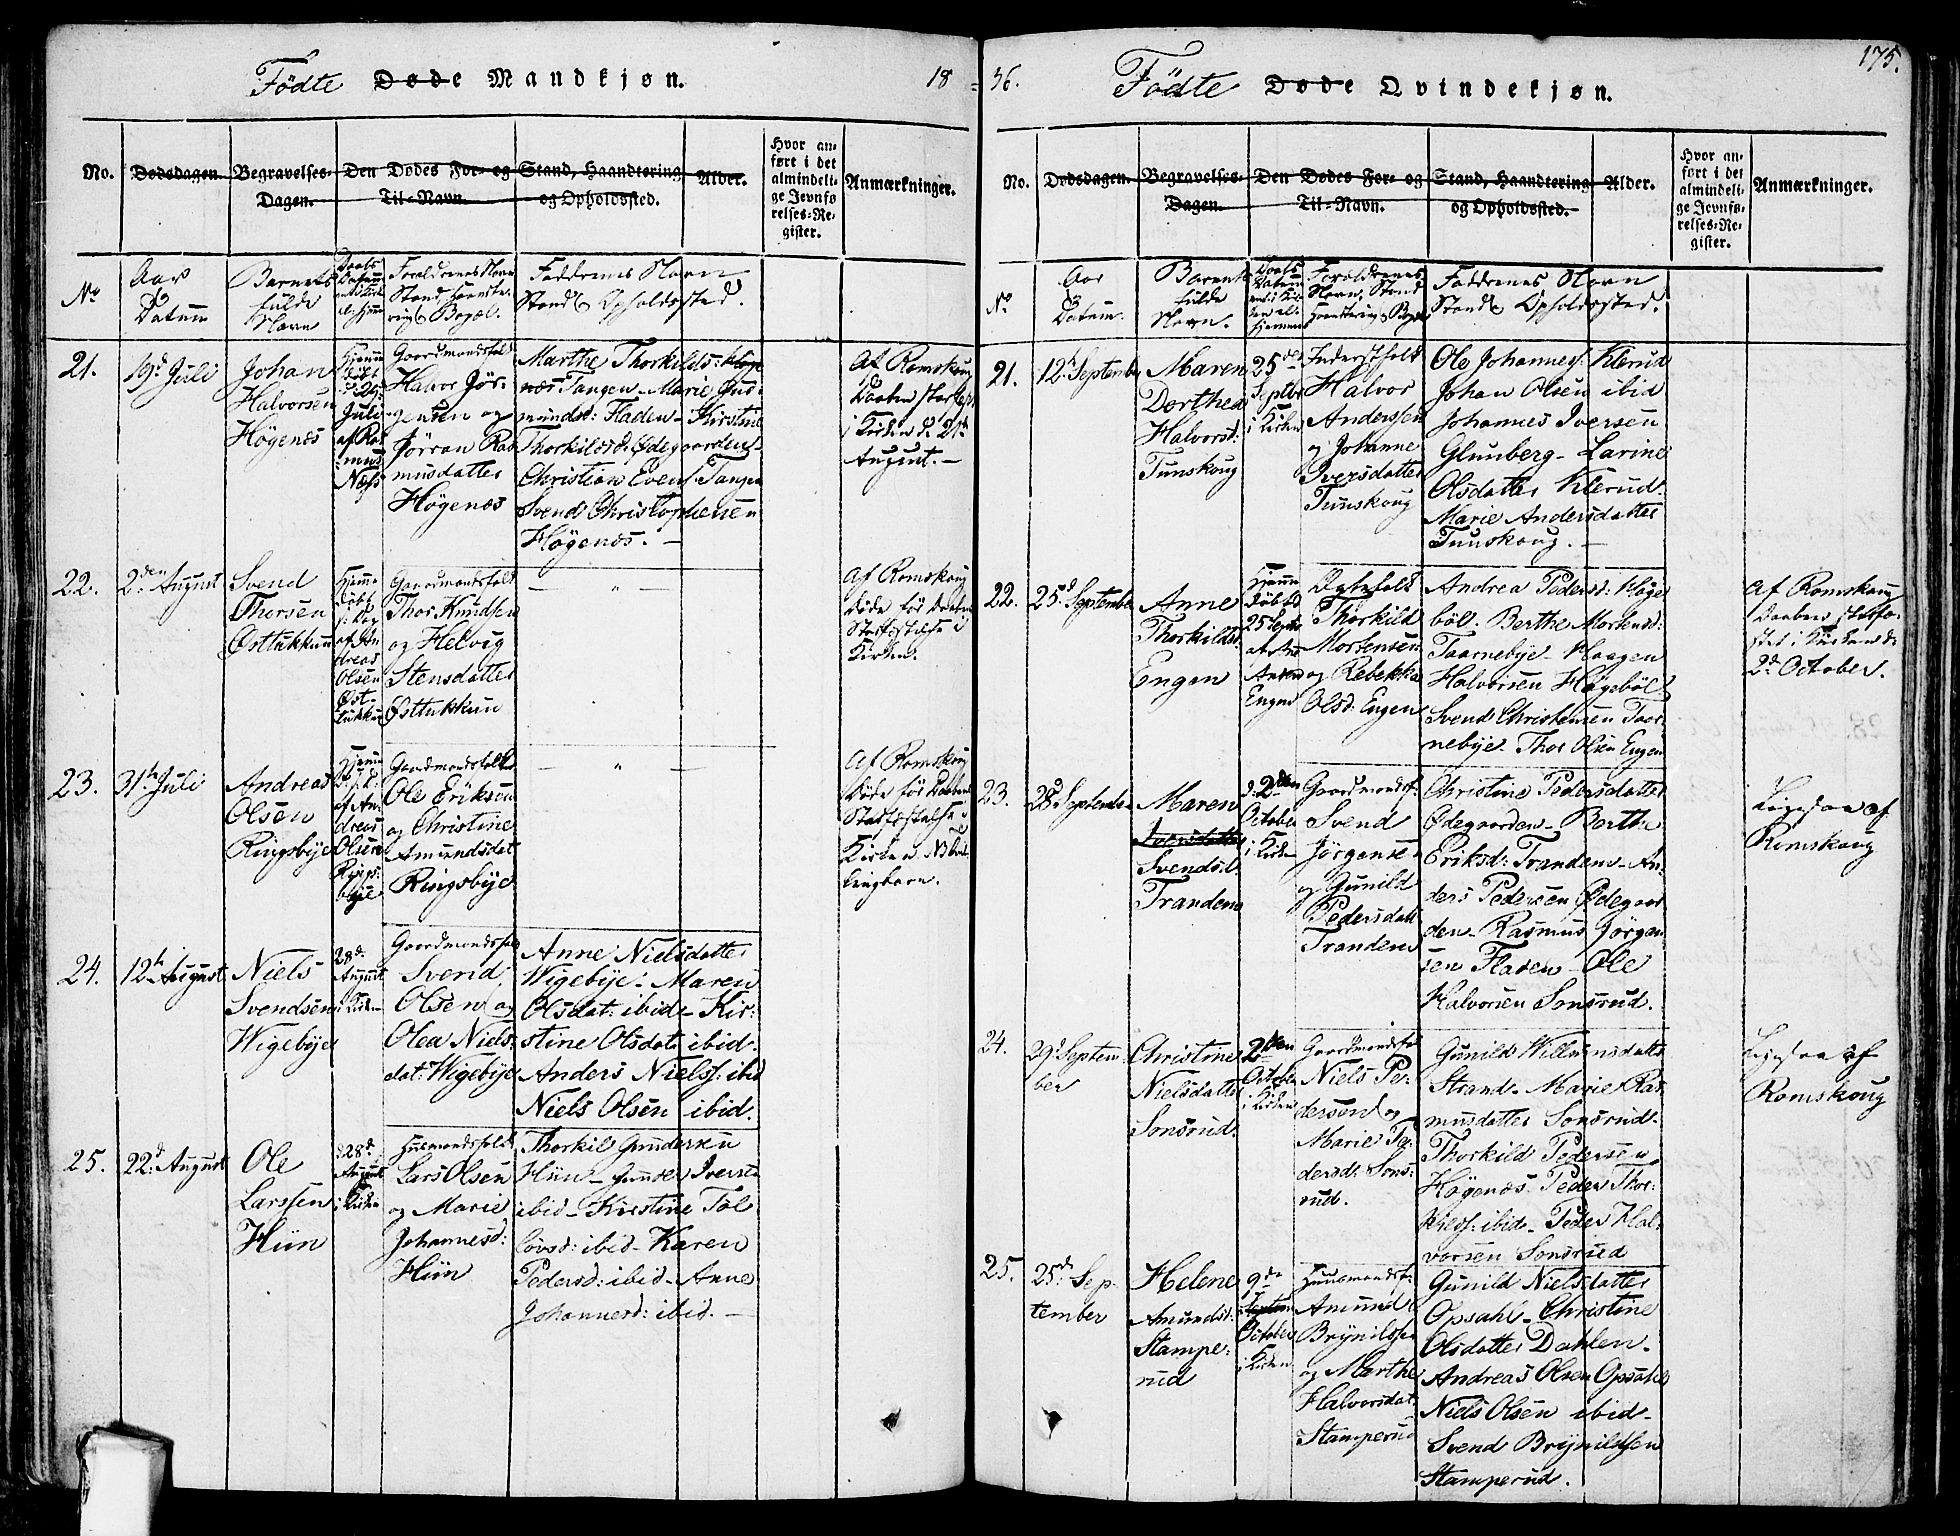 Fødte Døde Mandkjøn. 18
No. Dødsdagen. Begravelses-Dagen. Den Dødes For- og Til-Navn. Stand, Haandtering og Opholdssted. Alder. Hvor anført i det almindelige Jevnførelses-Register. Anmærkninger.
No Aar & Datum Barnets fulde Navn Daabs Datum Forældrenes Navn Stand Haandtering & Bopæl. Faddrenes Navn Stand & Opholdssted.
21. 19d Juli
Johan
Halvorsen
Høgenæs
Hjemme
døbt
d. 29
Juli
af Ras
mus
Næss
Gaardmandsfolk
Halvor Jør-
gensen og
Jørran Ras
musdatter
Høgenæs
Marthe Thorkilds: Høge
næs Tangen Marie Gud-
mundsd: Fladen - Kirstine
Thorkildsd: Ødegaarden -
Christian Evens: Tangen
Svend Christophersen
Høgenæs. -
Af Romskoug
Daaben stadfæst
i Kirken d. 21d
August. -
22. 2den August
Svend
Thorsen
Østtukkun
Hjemme
døbt
af An
dreas
Olsen
Øst-
tukkun
Gaardmandsfolk
Thor Knudsen
og Helvig
Stensdatter
Østtukkun
— " —
Af Romskoug
Døde før Daabens
Stadfæstelse i
Kirken.
23. 31te Juli
Andreas
Olsen
Ringsbye
Hjemme
af An
dreas
Olsen
Rings-
bye
Gaardmandsfolk
Ole Eriksen
og Christine
Amundsdat
Ringsbye
— " —
Af Romskoug
Døde før Daabens
Stadfæstelse i
Kirken NB
24. 12te August
Niels
Svendsen
Wigebye
28d
August
i Kirken
Gaardmandsfolk
Svend
Olsen og
Olea Niels:
dat: Wigebye
Anne Nielsdatter
Wigebye - Maren
Olsdat: ibid - Kir-
stine Olsdat: ibid.
Anders Niels: ibid
Niels Olsen ibid.
25. 22d August
Ole
Larssen
Hiin
28d
August
i Kirken
Huusmandsfolk
Lars Olsen
og Marie
Johannesd:
Hiin
Thorkil Gundersen
Hiin - Gunder Iversen
ibid - Kirstine Tol
løvsd: ibid - Karen
Pedersd: ibid - Anne
Johannesd: ibid. —
36. Fødte Døde Qvindekjøn. 175.
No. Dødsdagen. Begravelses-Dagen. Den Dødes For- og Til-Navn. Stand, Haandtering og Opholdssted. Alder. Hvor anført i det almindelige Jevnførelses-Register. Anmærkninger.
No Aar & Datum. Barnets fulde Navn. Daabs Datum Forældrenes Navn, Stand Haandtering & Bopæl Faddrenes Navn Stand & Opholdssted.
21. 12te September
Maren
Dorthea
Halvorsd:
Tunskoug
25de
Septbr
i Kirken
Inderstfolk
Halvor
Andersen
og Johanne
Iversdatter
Tunskoug
Ole Johannes: Klerud
Johan Olsen ibid
Johannes Iversen
Glunberg - Larine
Olsdatter Klerud.
Marie Andersdatter
Tunskoug. —
22. 25d September
Anne
Thorkildsd:
Engen
Hjemme
døbt d
25 Septb
Engen
Thorkild
Mortensen
og Rebekka
Olsd: Engen
Andrea Pedersd: Høge
böl. Berthe Mortensd:
Taarnebye - Haagen
Halvorsen Høgeböl
Svend Christensen Taar-
nebye. Thor Olsen Engen
Af Romskoug
Daaben stadfæ-
stet i Kirken d.
2d October.
23. 28 September
Maren
Svendsd.
Tranden
d. 2den
October
i Kirken
Gaardmandsf:
Svend
Jörgense
og Gunild
Pedersdatt
Tranden
Christine Pedersdatter
Ødegaarden - Berthe
Eriksd: Tranden - An-
ders Pedersen Ødegaar
den - Rasmus Jörgen
sen Fladen - Ole
Halvorsen Sonsrud.
Ligesaa af
Romskoug
24. 29d Septem
ber
Christine
Nielsdatter
Sonsrud.
2den
October
i Kirken
Gaardmandsfo
Niels Pe-
dersen og
Marie Pe-
dersd: Sons-
rud.
Gunild Willumsdatter
Strand - Marie Ras-
musdatter Sonsrud.
Thorkild Pedersen
Høgenæs - Peder Thor-
kilds: ibid - Peder Hal-
vorsen Sonsrud
Ligesaa af
Romskoug
25. 25d Sep-
tember
Helene
Amundsd:
Stampe-
rud
9de
Septem
October
i Kirken
Huusmandsf:
Amund
Brynilsen
og Marthe
Halvorsdat.
Stamperud
Gunild Nielsdatter
Opsahl - Christine
Olsdatter Dahlen -
Andreas Olsen Opsahl
Niels Olsen ibid -
Svend Brynildsen
Stamperud.